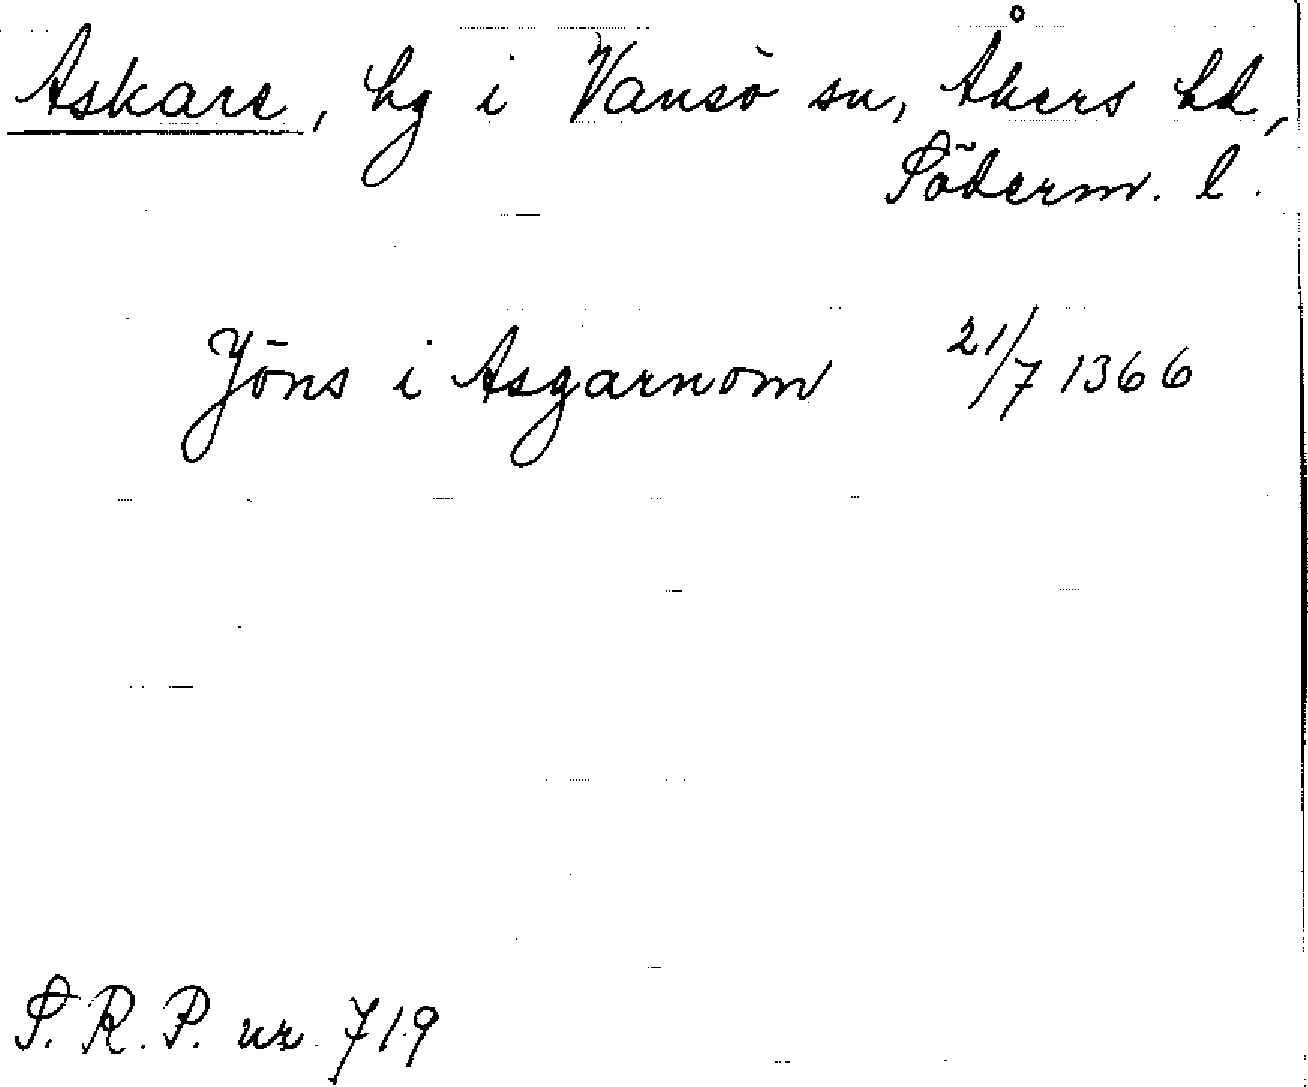 Askare, hg i Vansö sn, Åkers hd,
Söderm. l.
Jöns i Asgarnom 21/7 1366
S. R. P. nr 719